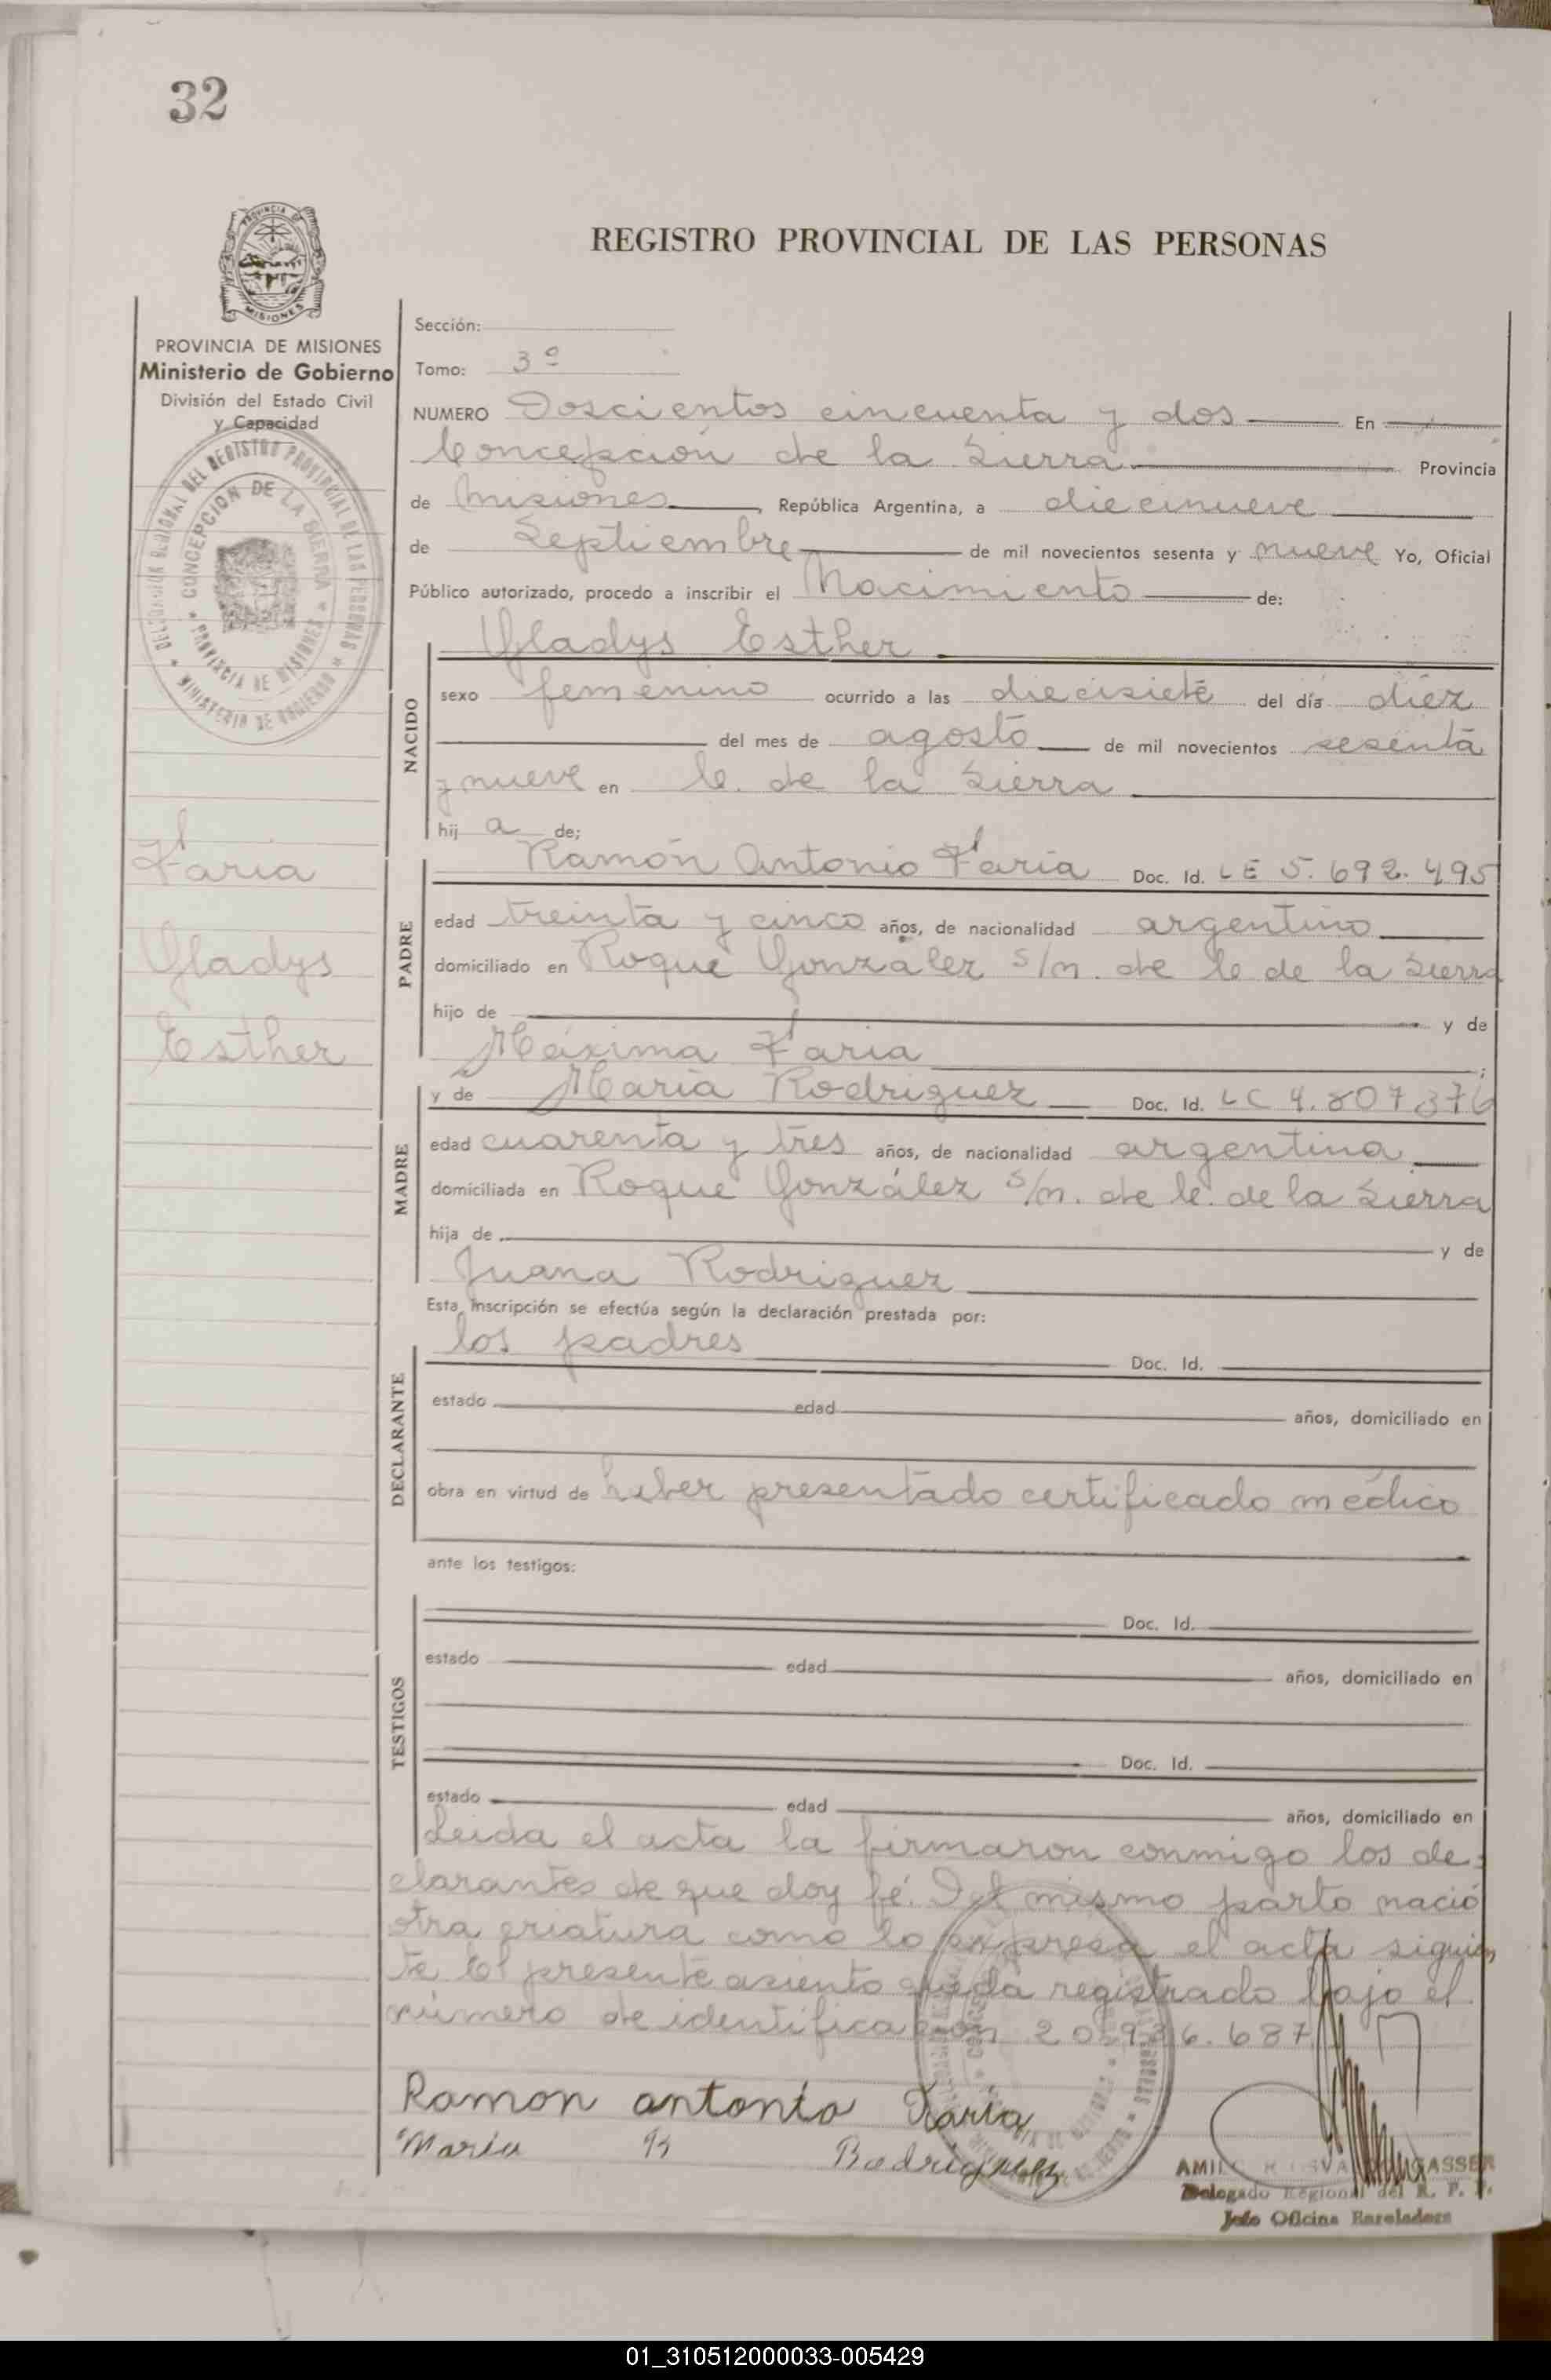 32
REGISTRO PROVINCIAL DE LAS PERSONAS
PROVINCIA DE MISIONES
Ministerio de Gobierno
División del Estado Civil
y Capacidad
DELEGACION REGIONAL DEL REGISTRO PROVINCIAL DE LAS PERSONAS
CONCEPCION DE LA SIERRA
PROVINCIA DE MISIONES
MINISTERIO DE GOBIERNO
Faria
Gladys
Esther
Sección:
Tomo: 3º
NUMERO Doscientos cincuenta y dos En
Concepción de la Sierra Provincia
de Misiones, República Argentina, a diecinueve
de Septiembre de mil novecientos sesenta y nueve Yo, Oficial
Público autorizado, procedo a inscribir el Nacimiento de:
NACIDO
Gladys Esther
sexo femenino ocurrido a las diecisiete del día diez
del mes de agosto de mil novecientos sesenta
y nueve en C. de la Sierra
hij a de;
PADRE
Ramón Antonio Faria Doc. Id. LE 5.692.495
edad treinta y cinco años, de nacionalidad argentino
domiciliado en Roque González s/n. de C de la Sierra
hijo de y de
Máxima Faria;
MADRE
y de María Rodriguez Doc. Id. LC 4.807.376
edad cuarenta y tres años, de nacionalidad argentina
domiciliada en Roque González s/n. de C. de la Sierra
hija de y de
Juana Rodriguez
Esta inscripción se efectúa según la declaración prestada por:
DECLARANTE
los padres Doc. Id.
estado edad años, domiciliado en
obra en virtud de haber presentado certificado médico
ante los testigos:
TESTIGOS
Doc. Id.
estado edad años, domiciliado en
Doc. Id.
estado edad años, domiciliado en
Leida el acta la firmaron conmigo los de-
clarantes de que doy fé. Del mismo parto nació
otra criatura como lo expresa el acta siguien
te El presente asiento queda registrado bajo el
número de identificación 20.936.687
Ramon antonio Faria
Maria Rodriguez
GASSER
Delegado Regional del R. P. P.
Jefe Oficina
01_310512000033-005429